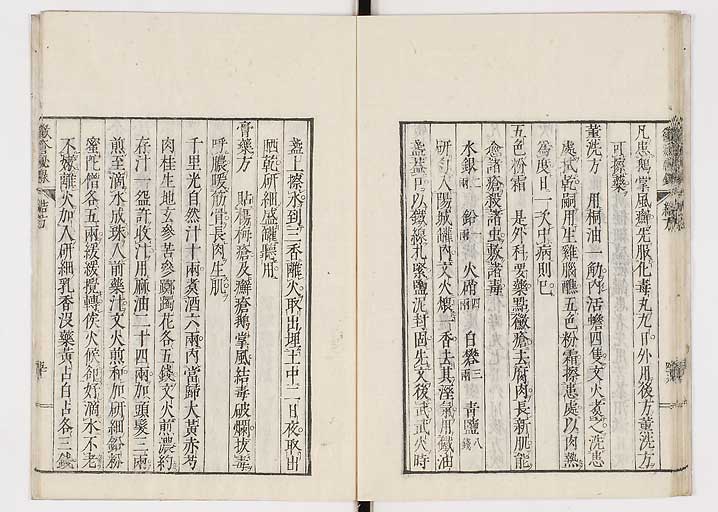 凡患鵝掌風癬先服化毒丸九日外用後方薰洗方
可擦藥
薰洗方　用桐油一觔內活蟾四隻文火煑之洗患
處拭乾嗣用生雞腦蘸五色粉霜擦患處以肉熱
爲度日一次虫病則已
五色粉霜　是外科要藥點黴瘡去腐肉長新肌能
愈諸瘡殺諸虫敷諸毒
水銀一兩　鉛一兩　火硝四兩　白礬三兩　青鹽八錢
研勻入陽城罐內文火煅一香去其溼氣用鐵油
盞葢口以鐵線扎緊鹽泥封固先文後武火時
盞上擦水到三香離火取出埋土中二日夜取出
晒乾研細盛罐聽用
膏藥方　貼楊梅瘡及癬瘡鵝掌風結毒破爛拔毒
呼膿暖筋骨長肉生肌
千里光自然汁十兩煑酒六兩內當歸大黃赤芍
肉桂生地玄參苦參躑躅花各五錢文火煎濃約
存汁一盌許收汁用麻油二十四兩加頭髮三兩
煎至滴水成珠入前藥汁文火煎和加研細鉛粉
蜜陀僧各五兩緩緩攪轉俟火候卻好滴水不老
不嫩離火加入研細乳香沒藥黃占白占各三錢
黴瘡秘錄
結方